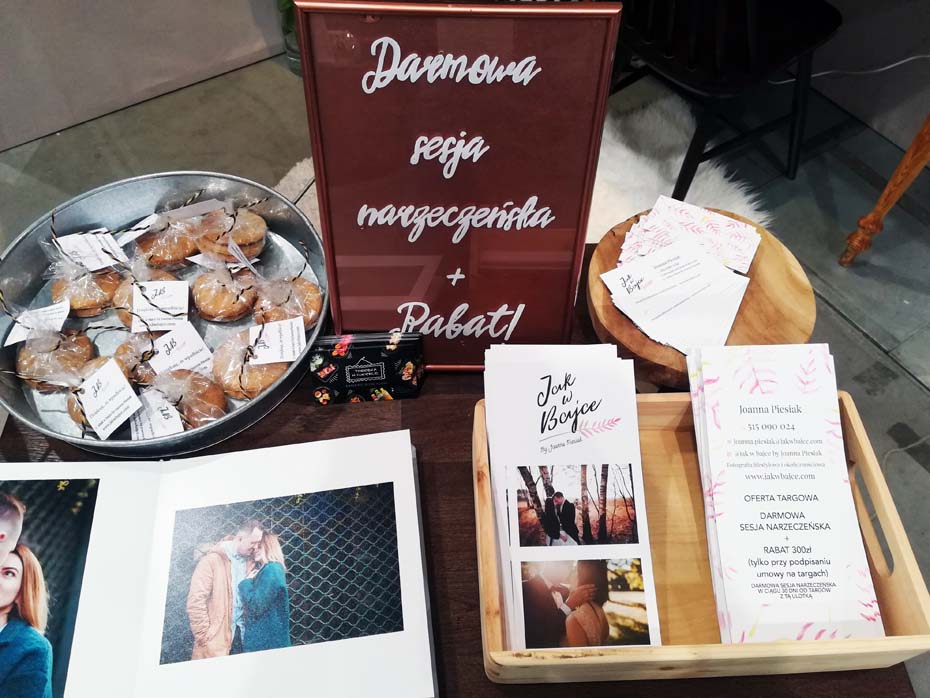 Darmowa
sesja
narzeczeńska
+
Rabat!
Jak
w
Bajce
By Joanna Piesiak
Joanna Piesiak
515 090 024
joanna.piesiak@jakwbajce.com
@jak w bajce by Joanna Piesiak
Fotografia lifestylowa i okolicznościowa
www.jakwbajce.com
OFERTA TARGOWA
DARMOWA
SESJA NARZECZEŃSKA
+
RABAT 300zł
(tylko przy podpisaniu
umowy na targach)
DARMOWA SESJA NARZECZEŃSKA
W CIĄGU 30 DNI OD TARGÓW
Z TĄ ULOTKĄ
Joanna Piesiak
Jak
w
Bajce
JwB
JwB
JwB